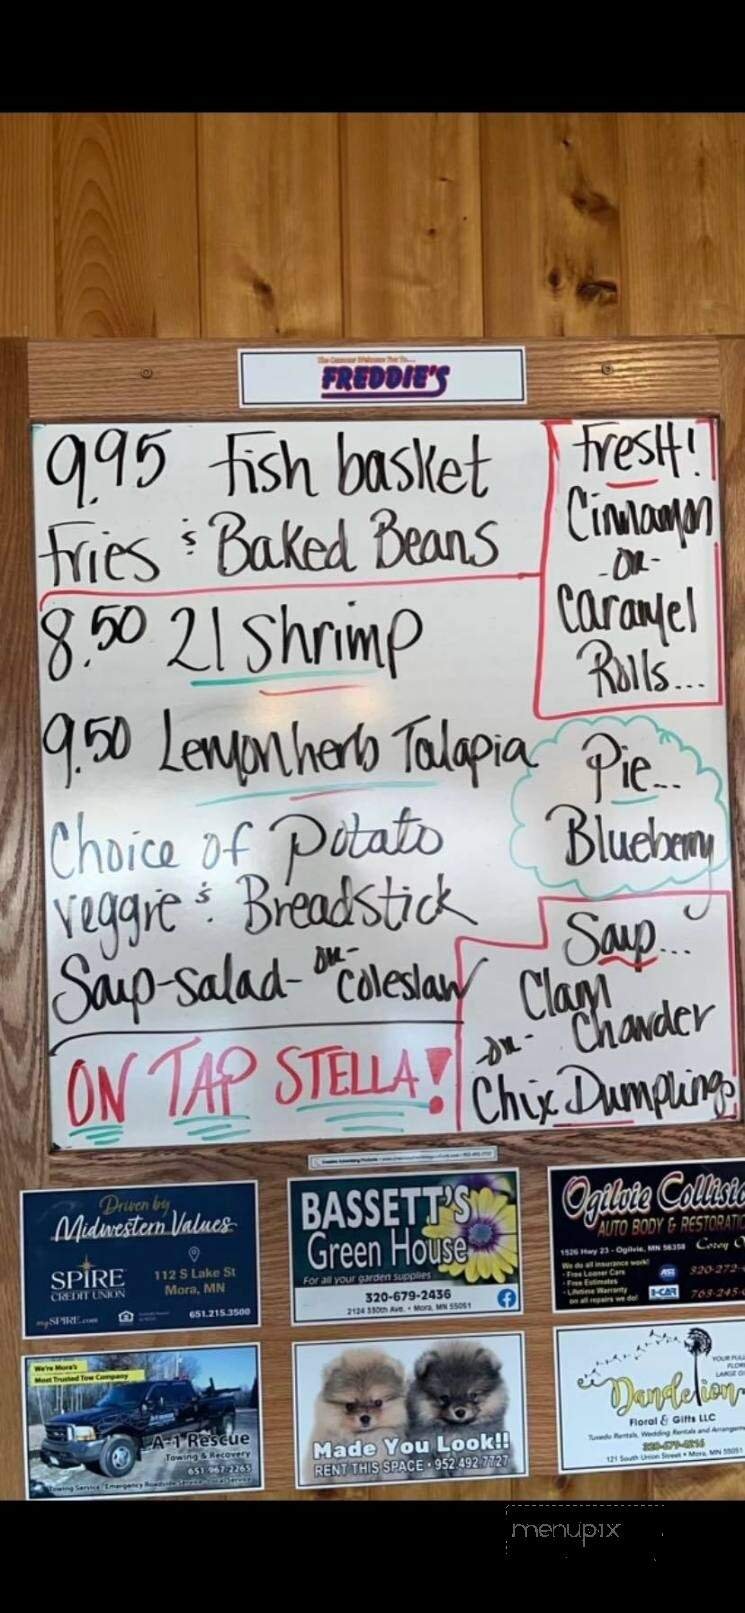 FREDDIE'S
9.95 Fish basket
Fries & Baked Beans
8.50 21 Shrimp
9.50 Lemonherb Talapia
Choice of Potato
Veggie & Breadstick
Soup-salad-or-coleslaw
ON TAP STELLA!
FresH!
Cinnamon
-or-
Caramel
Rolls...
Pie...
Blueberry
Soup...
Clam
Chowder
-or-
Chix Dumplings
Driven by
Midwestern Values
SPIRE
CREDIT UNION
112 S Lake St
Mora, MN
mySPIRE.com
651.215.3500
BASSETT'S
Green House
For all your garden supplies
320-679-2436
2124 330th Ave. • Mora, MN 55051
Ogilvie Collisio
AUTO BODY & RESTORATIO
1526 Hwy 23 - Ogilvie, MN 56358
Corey O
We do all insurance work!
- Free Loaner Cars
- Free Estimates
- Lifetime Warranty
on all repairs we do!
I-CAR
320-272-
763-245-
We're Mora's
Most Trusted Tow Company
A-1 Rescue
Towing & Recovery
651-967-2265
Made You Look!!
RENT THIS SPACE • 952.492.7727
Dandelion
Floral & Gifts LLC
Tuxedo Rentals, Wedding Rentals and Arrangeme
320-679-0216
121 South Union Street • Mora, MN 55051
menupix